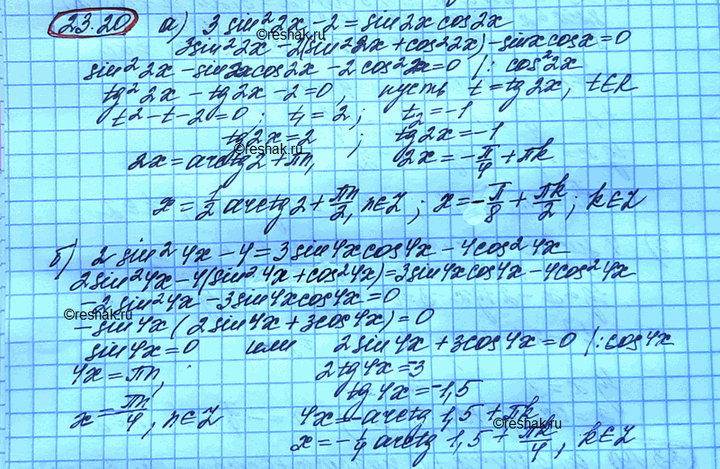 23.20 а) 3 sin² 2x - 2 = sin 2x cos 2x
3sin² 2x - 2(sin² 2x + cos² 2x) - sin x cos x = 0
sin² 2x - sin 2x cos 2x - 2 cos² 2x = 0 |: cos² 2x
tg² 2x - tg 2x - 2 = 0, пусть t = tg 2x, t∈R
t² - t - 2 = 0: t₁ = 2; t₂ = -1
tg 2x = 2; tg 2x = -1
2x = arctg 2 + πn, 2x = -π/4 + πk
x = 1/2 arctg 2 + πn/2, n∈Z; x = -π/8 + πk/2; k∈Z
б) 2 sin² 4x - 4 = 3 sin 4x cos 4x - 4 cos² 4x
2 sin² 4x - 4(sin² 4x + cos² 4x) = 3 sin 4x cos 4x - 4 cos² 4x
-2 sin² 4x - 3 sin 4x cos 4x = 0
- sin 4x (2 sin 4x + 3 cos 4x) = 0
sin 4x = 0 или 2 sin 4x + 3 cos 4x = 0 |: cos 4x
4x = πn, 2 tg 4x = -3
tg 4x = -1,5
x = πn/4, n∈Z 4x = -arctg 1,5 + πk
x = -1/4 arctg 1,5 + πk/4, k∈Z
©reshak.ru
©reshak.ru
©reshak.ru
©reshak.ru